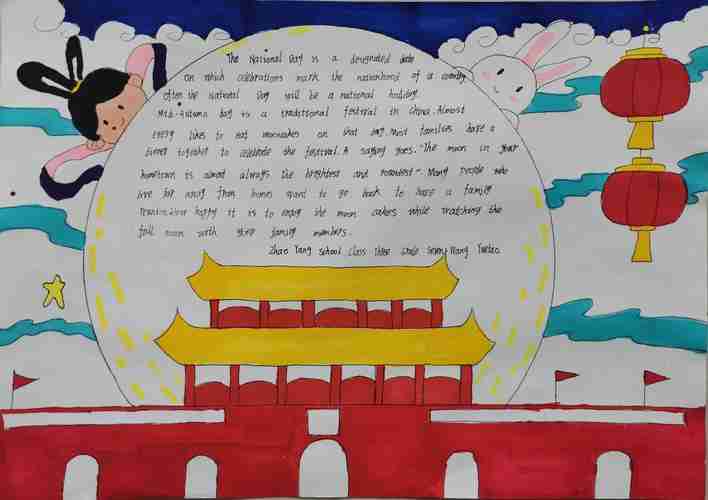 The National Day is a designated date
on which celebrations mark the nationhood of a country
often the national Day will be a national holiday.
Mid-Autumn Day is a traditional festival in China. Almost
every likes to eat mooncakes on that day. Most families have a
dinner together to celebrate the festival. A saying goes. "The moon in your
hometown is almost always the brightest and roundest". Many people who
live far away from homes want to go back to have a family
happy it is to enjoy the moon cakes while watching the
full moon with your family members.
Zhao Yang School Class Three Grade Seven Wang